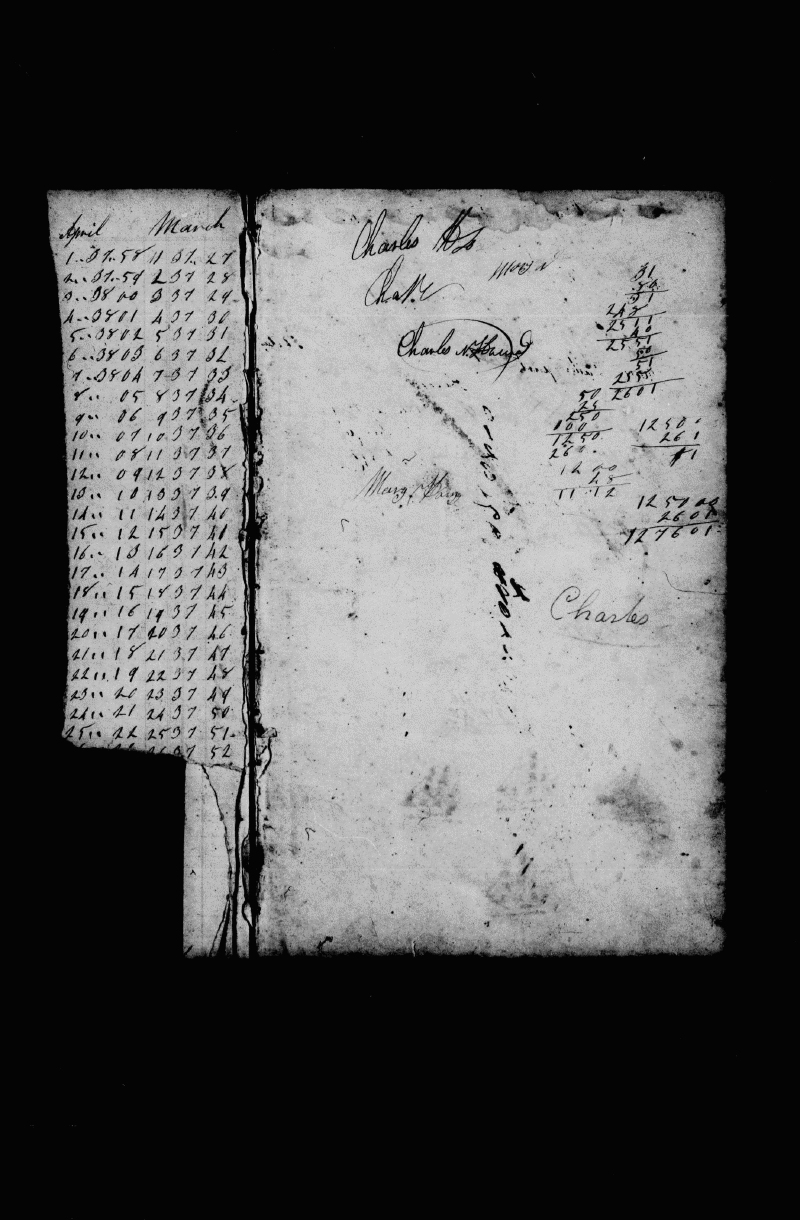 April March
1 .. 37 .. 58 1 37 .. 27
2 .. 37 .. 59 2 37 28
3 .. 38 00 3 37 29
4 .. 3801 4 37 30
5 .. 3802 5 37 31
6 .. 3803 6 37 32
7 .. 3804 7 37 33
8 .. 05 8 37 34
9 .. 06 9 37 35
10 .. 07 10 37 36
11 .. 08 11 37 37
12 .. 09 12 37 38
13 .. 10 13 37 39
14 .. 11 14 37 40
15 .. 12 15 37 41
16 .. 13 16 37 42
17 .. 14 17 37 43
18 .. 15 18 37 44
19 .. 16 19 37 45
20 .. 17 20 37 46
21 .. 18 21 37 47
22 .. 19 22 37 48
23 .. 20 23 37 49
24 .. 21 24 37 50
25 .. 22 25 37 51
37 52
Charles
Charles N.
Mary
Charles
31
2511
40
2551
50
51
2601
50
25
250
100
1250
260
1200
28
11 12
12500
261
125000
2601
127601